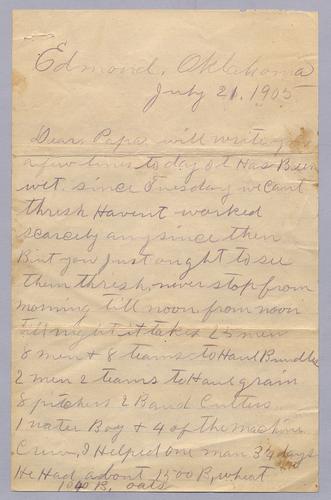 Edmond, Oklahoma
July 21, 1905
Dear Papa will write you
a few lines to day it Has Been
wet. since Tuesday we Cant
thresh Havent worked
scarcely any since then
But you Just ought to see
them thresh, never stop from
morning till noon from noon
till night it takes 25 men
8 men & 8 teams to Haul Bundles
2 men 2 teams to Haul grain
8 pitchers 2 Band Cutters
1 water Boy & 4 of the machine
Crew, I Helped one man 3 1/4 days
He Had about 1500 B, wheat
1040 B, oats